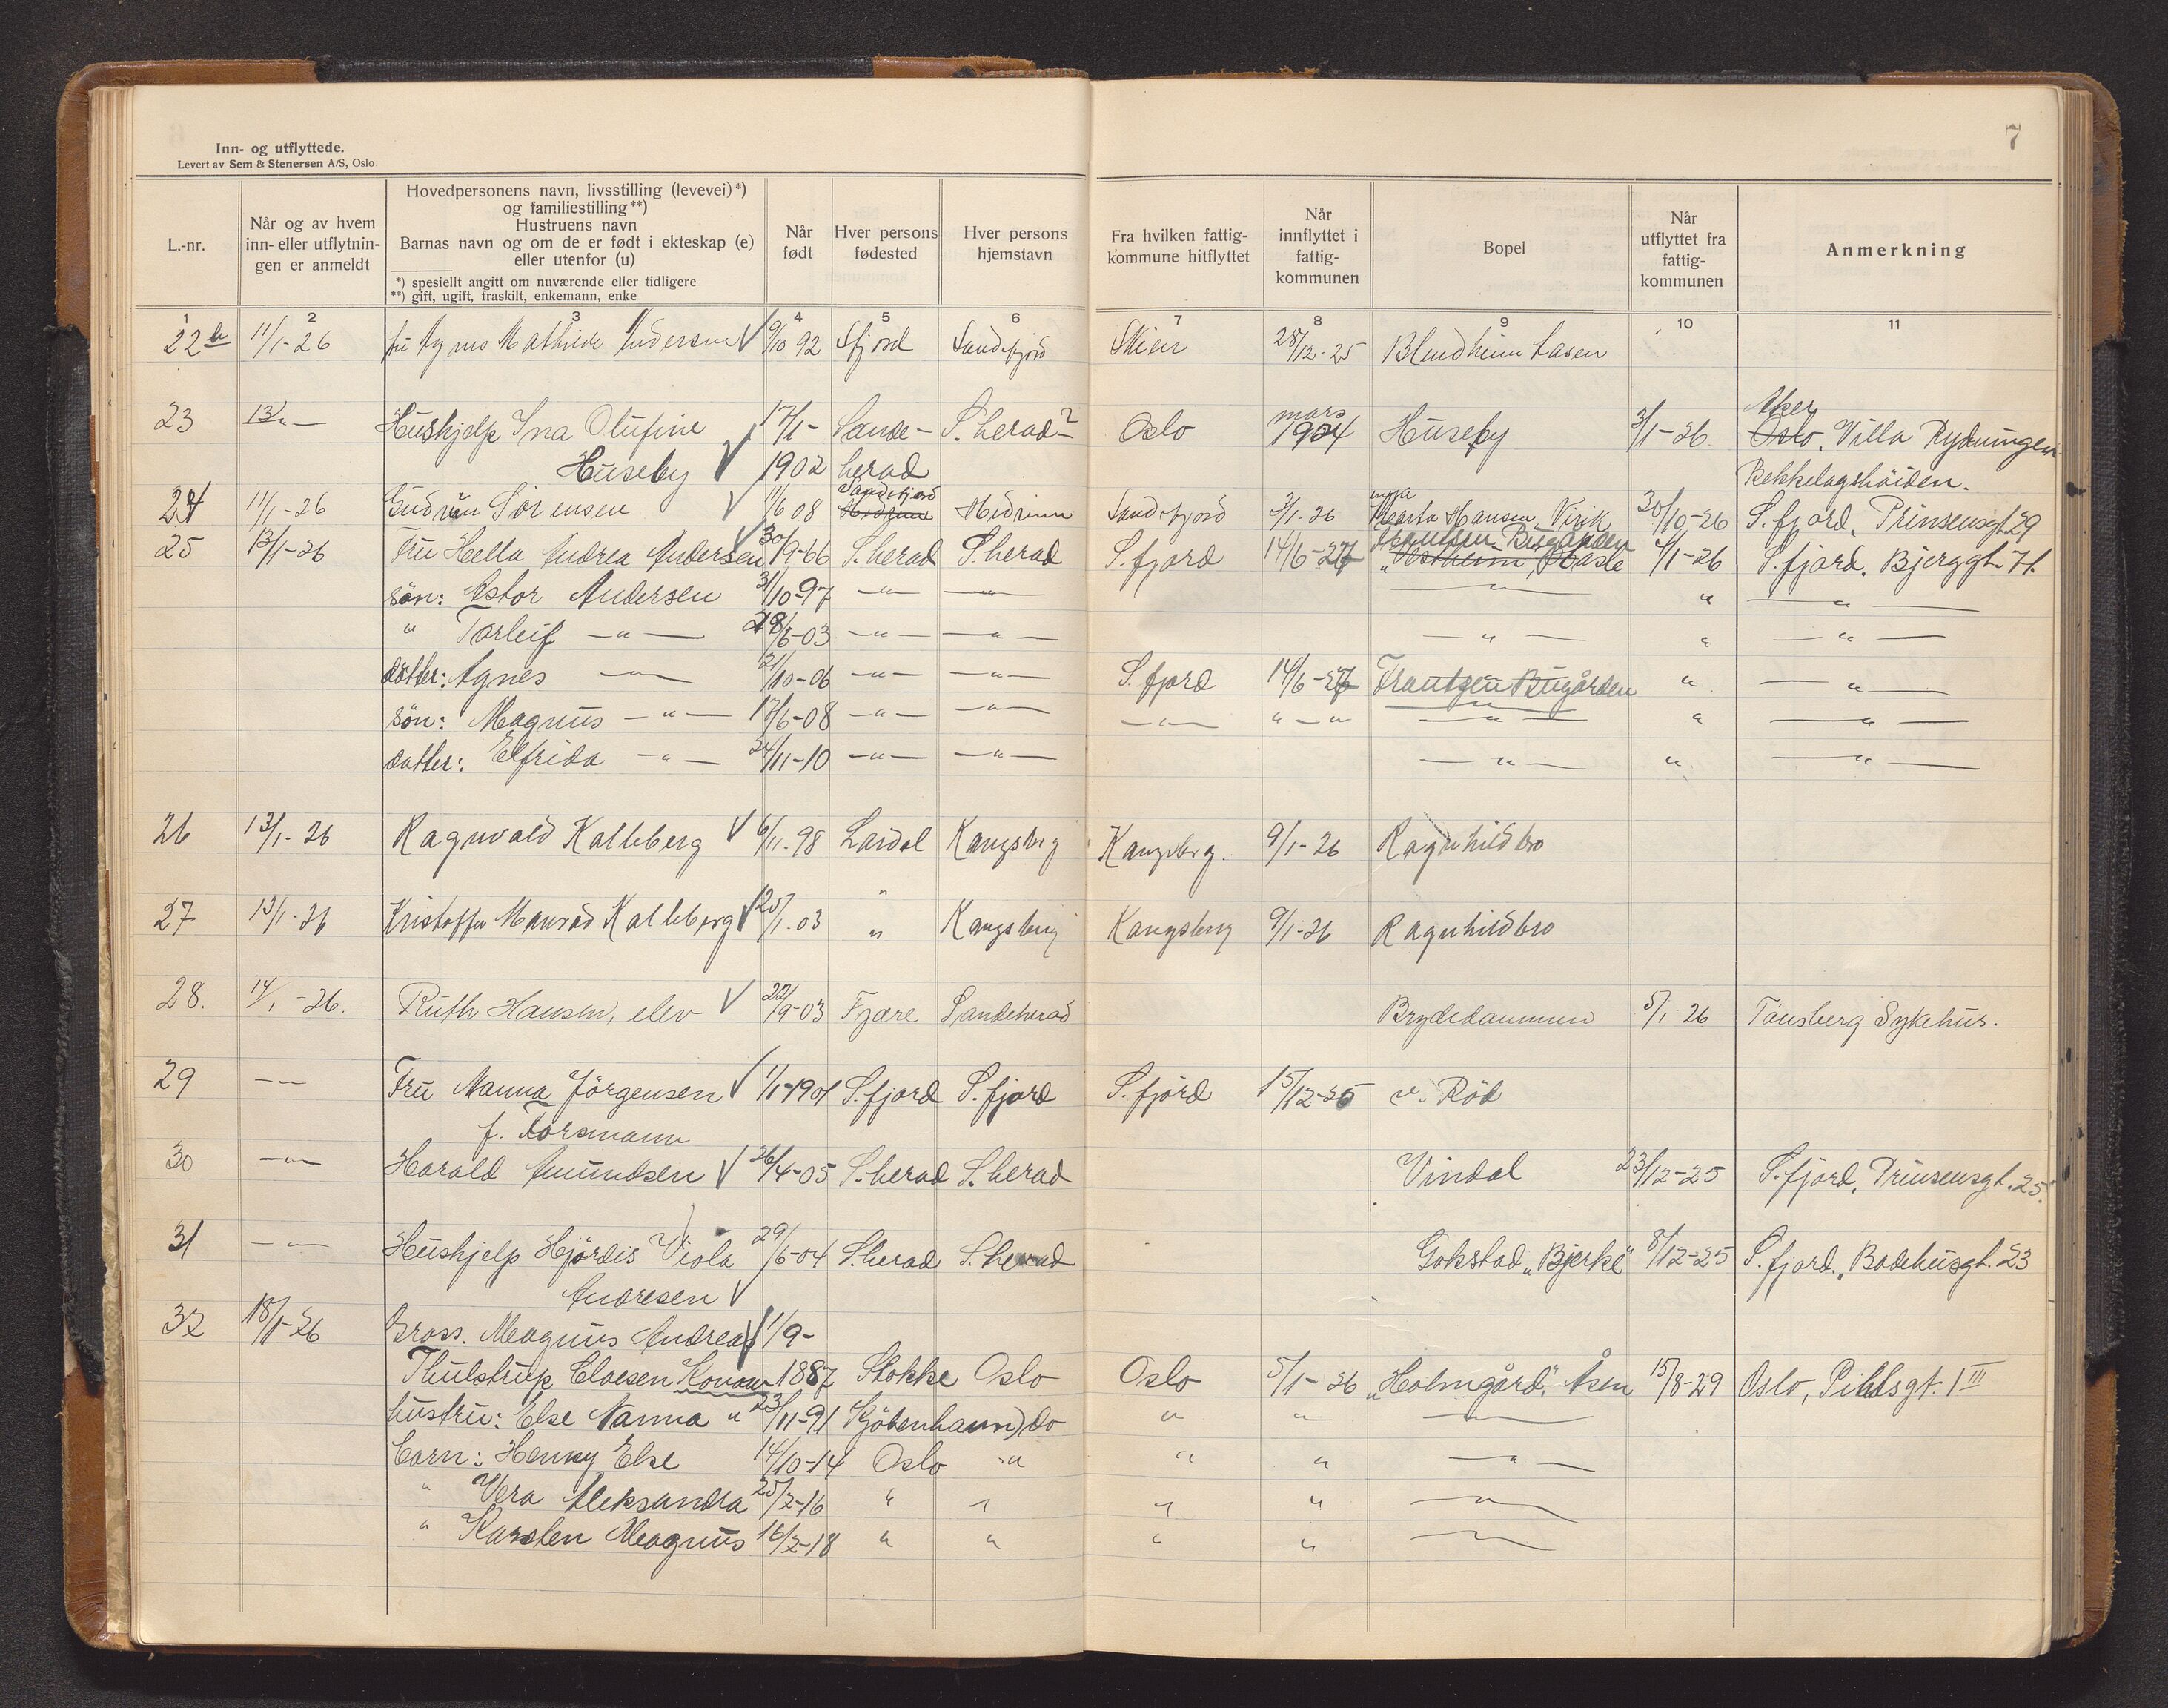 7
Inn- og utflyttede.
Levert av Sem & Stenersen A/S, Oslo
L.-nr.
Når og av hvem inn- eller utflytnin- gen er anmeldt
Hovedpersonens navn, livsstilling (levevei) *)
og familiestilling **)
Hustruens navn
Barnas navn og om de er født i ekteskap (e)
eller utenfor (u)
*) spesiellt angitt om nuværende eller tidligere
**) gift, ugift, fraskilt, enkemann, enke
Når født
Hver persons fødested
Hver persons hjemstavn
Fra hvilken fattig- kommune hitflyttet
Når innflyttet i fattig- kommunen
Bopel
Når utflyttet fra fattig- kommunen
Anmerkning
1 2 3 4 5 6 7 8 9 10 11
22b 11/1-26 fru Agnes Mathilde Andersen √ 9/10 92 Sfjord Sandefjord Skien 28/12-25 Blendheim Lasen
Aker
23 13/1 — Hushjelp Ina Olufine 17/1- Sande- S. herad? Oslo mars 1924 Huseby 3/1-26 Oslo. Villa Rydningen
Huseby √ 1902 herad Bekkelagshöiden.
Sandefjord
24 11/1-26 Gudrun Sörensen √ 11/6 08 Hedrum Hedrum Sandefjord 3/1-26 Marta Hansen Virik 30/10-26 S. fjord, Prinsensgt. 29
Frantsen Bugården
25 13/1-26 Fru Hella Andrea Andersen √ 30/9-66 S. herad S. herad S. fjord 14/6-27 "Vestheim", Hasle 4/1-26 S. fjord, Bjerggt. 71.
sön: Astor Andersen 31/10-97 —"— —"— —"— " —"—
" Torleif —"— 28/6-03 —"— —"— —"— " —"—
datter: Agnes —"— 21/10-06 —"— —"— S. fjord 14/6-27 Frantzen Bugården " —"—
sön: Magnus —"— 17/6-08 —"— —"— —"— "—" —"— " —"—
datter: Elfrida —"— 24/11-10 —"— —"— —"— " —"—
26 13/1-26 Ragnvald Kalleberg √ 6/11-98 Lardal Kongsberg Kongsberg. 9/1-26 Ragnhildbro
27 13/1-26 Kristoffer Kalleberg √ 25/1-03 " Kongsberg Kongsberg 9/1-26 Ragnhildbro
28. 14/1-26. Ruth Hansen, elev √ 22/9-03 Fjære Sandeherad Brydedammen 5/1 26 Tönsberg Sykehus.
29 —"— Fru Nanna Jörgensen √ 1/1-1901 S. fjord S. fjord S. fjord 15/12-25 v. Röd
f. Torsmann
30 —"— Harald Amundsen √ 26/4-05 S. herad S. herad Vindal 23/12-25 S. fjord, Prinsensgt. 25.
31 —"— Hushjelp Hjördis Viola 29/6-04 S. herad S. herad Gokstad "Bjerke" 8/12-25 S. fjord, Badehusgt. 23
Andresen √
32 18/1-26 Gross. Magnus Andreas √ 1/9-
Thulstrup Cloesen Konow 1887 Stokke Oslo Oslo 5/1-26 "Holmgård", Åsen 15/8-29 Oslo, Pihlsgt. 1 III
hustru: Else Nanna " 23/11-91 Kjöbenhavn) do " " —"—
barn: Henny Else 14/10-14 Oslo " " " —"—
" Vera Aleksandra 25/2-16 " " " " —"—
" Karsten Magnus 16/2-18 " " " " —"—